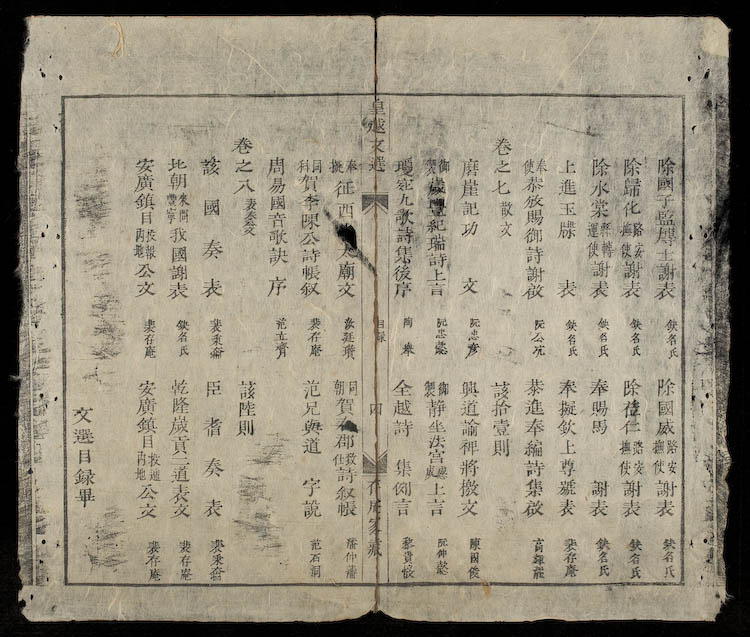 除國子監博士謝表 缺名氏 除國威路安撫使謝表 缺名氏
除歸化路安撫使謝表 缺名氏 除德仁路安撫使謝表 缺名氏
除水棠轉運使謝表 缺名氏 奉賜馬謝表 缺名氏
上進玉牒表 缺名氏 奉擬欽上尊號表 裴存庵
奉使恭放賜御詩謝啟 阮公沆 恭進奉編詩集啟
卷之七散文 該拾壹則
磨崖記功文 阮忠彥 興道諭裨將檄文 陳國峻
御製歲豐紀瑞詩上言 阮忠懿 御製靜坐法宮上言 阮仲懿
瓊宛九歌詩集後序 陶舉 全越詩集例言 黎貴惇
皇越文選 目錄 四 存庵家藏
奉擬征西太廟文 汝廷瓚 同朝賀郡致仕詩叙帳 潘仲藩
同科賀李陳公詩帳叙 裴存庵 范兄與道字說 范石洞
周易國音歌訣序 范立齋
卷之八表奏文 該陸則
該國奏表 裴秉齋 臣耆奏表 裴秉齋
北朝我國謝表 缺名氏 乾隆歲貢二道表文 裴存庵
安廣鎮目投報內地公文 裴存庵 安廣鎮目投遞內地公文 裴存庵
文選目録畢